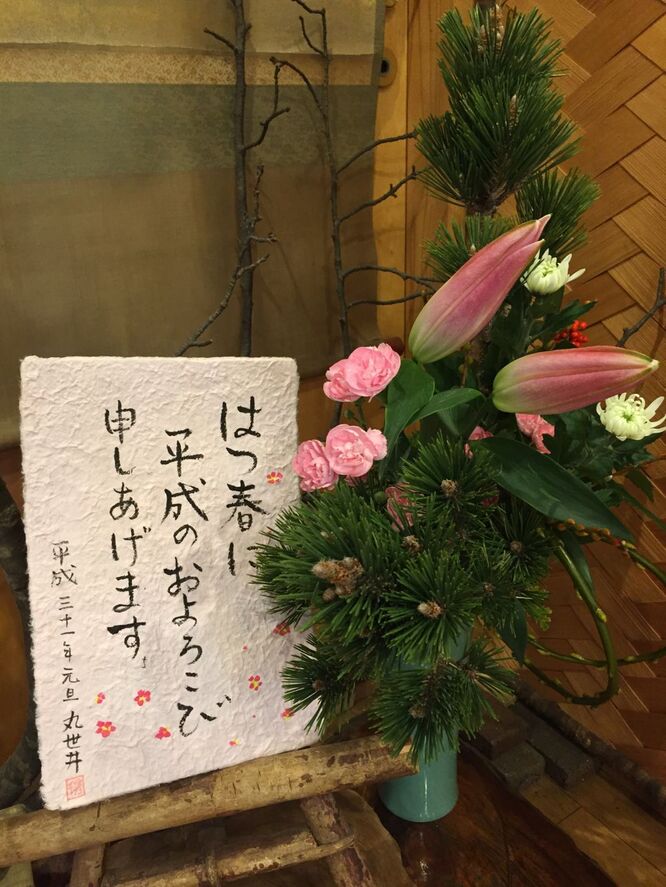 はつ春に
平成のおよろこび
申しあげます。
平成三十一年元旦 丸世井